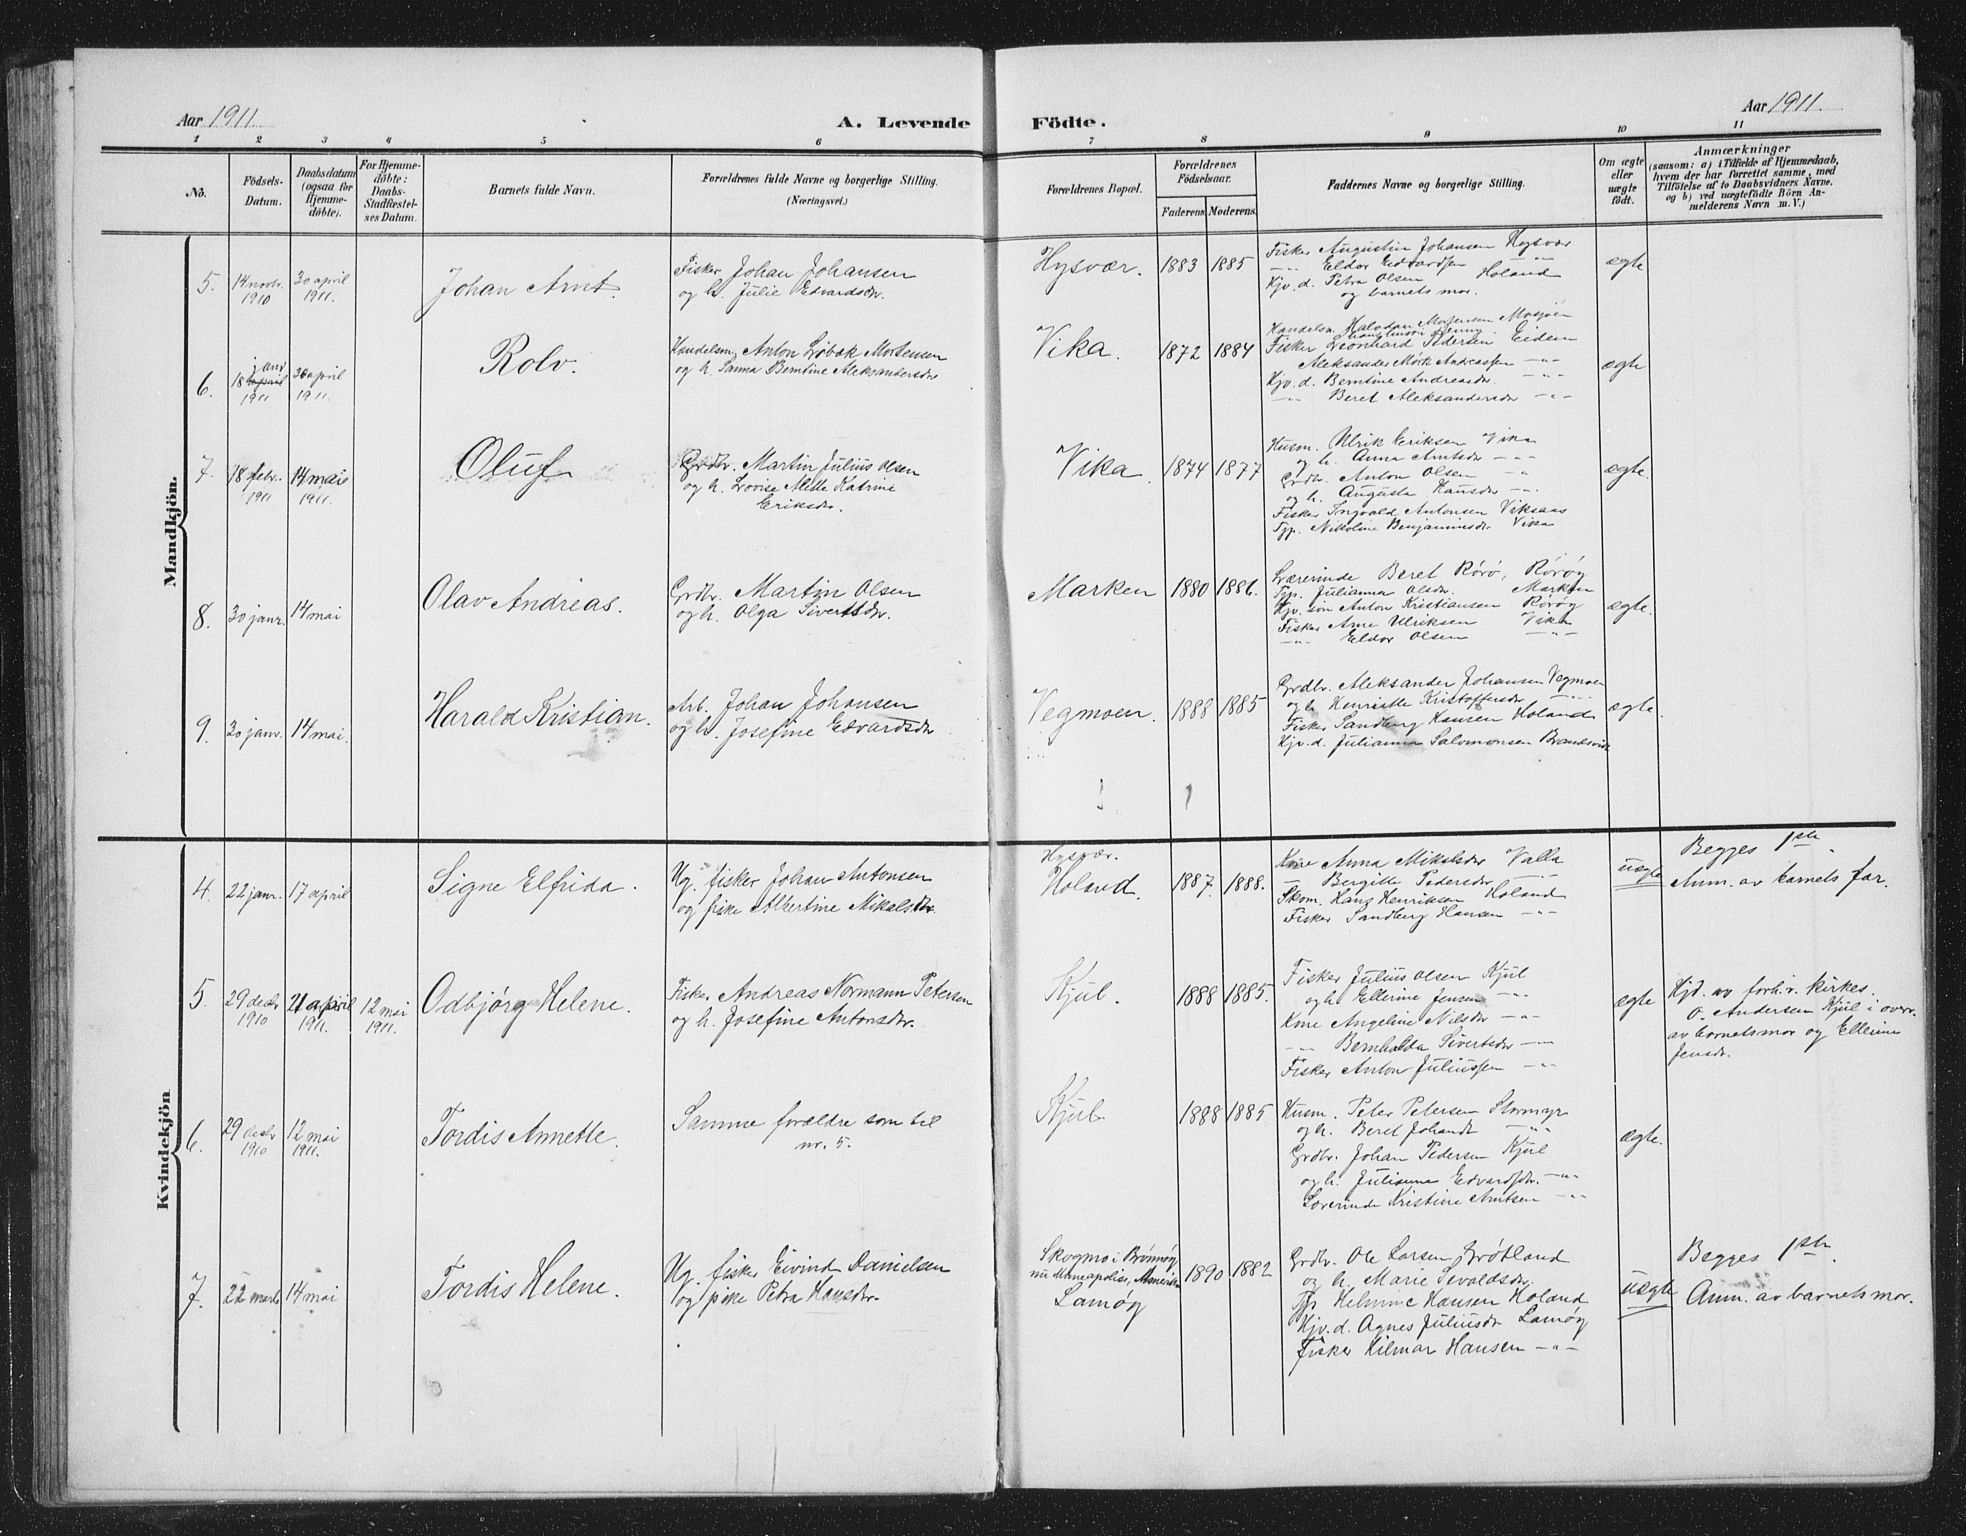 Aar 1911.
A. Levende Födte.
Aar 1911.
1 2 3 4 5 6 7 8 9 10 11
No.
Födsels-
Datum.
Daabsdatum
(ogsaa for
Hjemme-
döbte).
For Hjemme-
döbte:
Daabs-
Stadfæstel-
ses Datum.
Barnets fulde Navn.
Forældrenes fulde Navne og borgerlige Stilling.
(Næringsvei.)
Forældrenes Bopæl.
Forældrenes
Födselsaar.
Faderens Moderens.
Faddernes Navne og borgerlige Stilling.
Om ægte
eller
uægte
födt.
Anmærkninger
(saasom: a) i Tilfælde af Hjemmedaab,
hvem der har forrettet samme, med
Tilföielse af to Daabsvidners Navne.
og b) ved uægtefödte Börn An-
melderens Navn m. V.)
Mandkjön.
5. 14 novbr. 1910
30 april 1911.
Johan Arnt.
Fisker Johan Johansen
og h. Julie Edvardsdr.
Hysvær. 1883 1885
Fisker Augustin Johansen Hysvær
-"- Eldor Edvardsen
Kjv. d. Petra Olsen Holand
og barnets mor.
ægte
6. 18 janr april 1911
30 april 1911.
Rolv.
Handelsm. Anton Løbak Mortensen
og h. Sanna Berntine Aleksandersdr
Vika. 1872 1884
Handelsm. Halvdan Mortensen Mosjøen
Fisker Leonhard Pedersen Eidem
Aleksander Mørk Andreassen -"-
Kjv. d. Berntine Andreasdr. -"-
-"- Beret Aleksandersdr -"-
ægte
7. 18 febr. 1911
14 mai 1911.
Oluf
Grdbr. Martin Julius Olsen
og h. Lovise Mette Katrine
Eriksdr.
Vika. 1874 1877
Husm. Ulrik Eriksen Vika
og h. Anna Arntsdr -"-
Grdbr. Anton Olsen -"-
og h. Augusta Hansdr -"-
Fisker Ingvald Antonsen Viksaas
Tjp. Nikoline Benjaminsdr Vika
ægte.
8. 30 janr. 14 mai
Olav Andreas.
Grdbr. Martin Olsen
og h. Olga Sivertsdr.
Marken 1880 1886.
Lærerinde Beret Rörö, Röröy
Tjp. Julianna Olsdr. Marken
Kjv. søn Anton Kristiansen Röröy
Fisker Arne Ulriksen Vika
-"- Eldor Olsen -"-
ægte.
9. 30 janr. 14 mai.
Harald Kristian.
Arb. Johan Johansen
og h. Josefine Edvardsdr
Vegmoen. 1888 1885
Grdbr. Aleksander Johansen Vegmoen
og h. Henriette Kristoffersdr -"-
Fisker Sandberg Hansen Holand
Kjv. d. Julianna Salomonsen
ægte.
Kvindekjön
4. 22 janr. 17 april
Signe Elfrida.
Ug. fisker Johan Antonsen
og pike Albertine Mikalsdr.
Hysvær.
Holand. 1887. 1888.
Kone Anna Mikalsdr Valla
-"- Bergitte Pedersdr -"-
Skom. Hans Henriksen Holand
Fisker Sandberg Hansen -"-
uægte
Begges 1ste.
Anm. av barnets far.
5. 29 decbr 1910
21 april 1911.
12 mai 1911.
Odbjørg Helene.
Fisker Andreas Normann Petersen
og h. Josefine Antonsdr.
Kjul. 1888 1885.
Fisker Julius Olsen Kjul
og h. Ellerine Jensen -"-
Kone Angeline Nilsdr -"-
-"- Bernholda Sivertsdr -"-
Fisker Anton Juliussen -"-
ægte
Hjd. av forh.v. kirkes.
O. Andersen Kjul i overv.
av barnets mor og Ellerine
Jensdr.
6. 29 decbr 1910
12 mai 1911.
Tordis Annette.
Samme forældre som til
nr. 5.
Kjul 1888 1885
Husm. Peter Petersen Stormyr
og h. Beret Johandr -"-
Grdbr. Johan Pedersen Kjul
og h. Julianna Edvardsdr. -"-
Lærerinde Kristine Arntsen -"-
ægte.
7. 22 marts 14 mai
Tordis Helene.
Ug. fisker Eivind Danielsen
og pike Petra Hansdr.
Skogmo i Brønnøy
nu Minneapolis, Amerika
Lamøy 1890 1882
Grdbr. Ole Larsen Grøtland
og h. Marie Sevaldsdr.
Tjp. Helmine Hansen Holand
Kjv. d. Agnes Juliusdr Lamøy
Fisker Hilmar Hansen -"-
uægte
Begges 1ste.
Anm. av barnets mor.